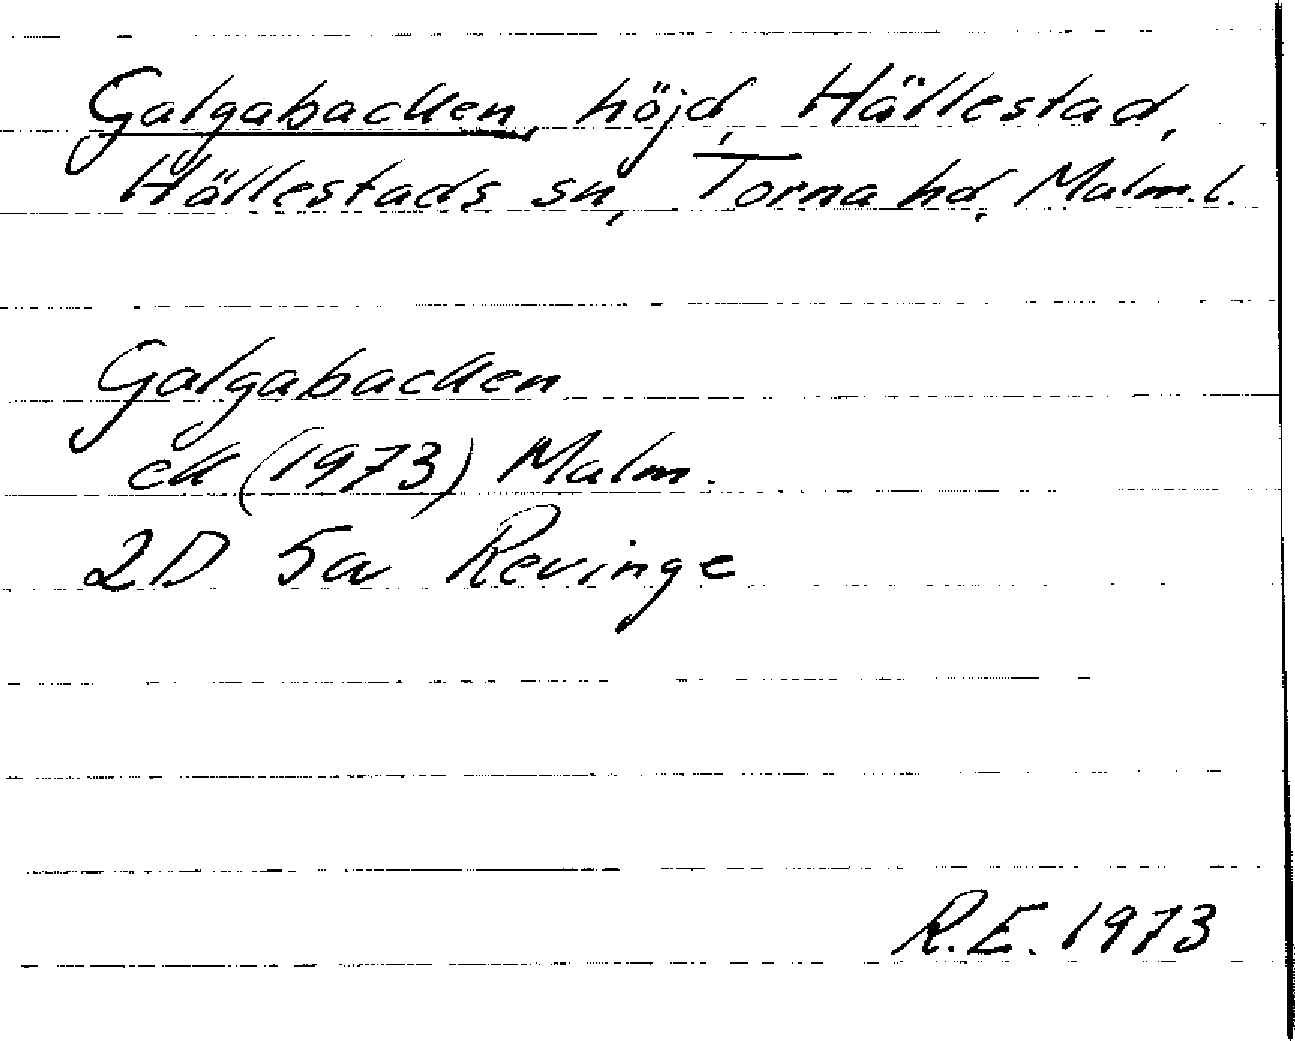 Galgabacken, höjd, Hällestad,
Hällestads sn, Torna hd, Malm.l.
Galgabacken
ek (1973) Malm.
2D 5a Revinge
R.E. 1973